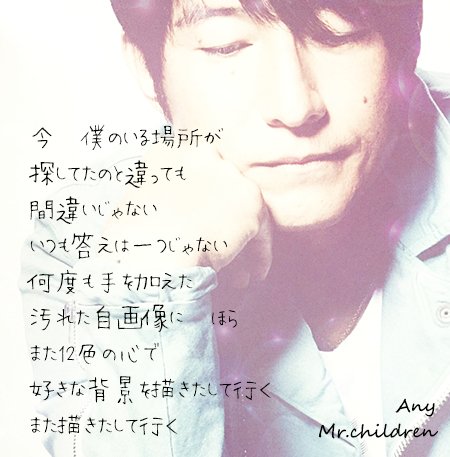 今　僕のいる場所が
探してたのと違っても
間違いじゃない
いつも答えは一つじゃない
何度も手を加えた
汚れた自画像に　ほら
また12色の心で
好きな背景を描きたして行く
また描きたして行く
Any
Mr.children